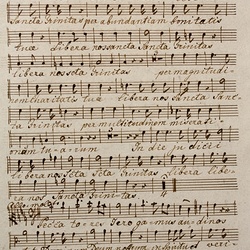 Sancta Trinitas per abundantiam bonitatis
tuæ Libera nos sancta Sancta Trinitas
libera nos sola Trinitas per magnitudi-
nem charitatis tuæ libera nos Sancta Sanc-
ta Trinitas per multitudinem misera si-
onum tu-arum In die judicii
libera nos Scta Scta Trinitas libera libe-
ra nos Sancta Trinitas
Pecca to-res Te ro ga-mus au-di nos
Deum nostrum